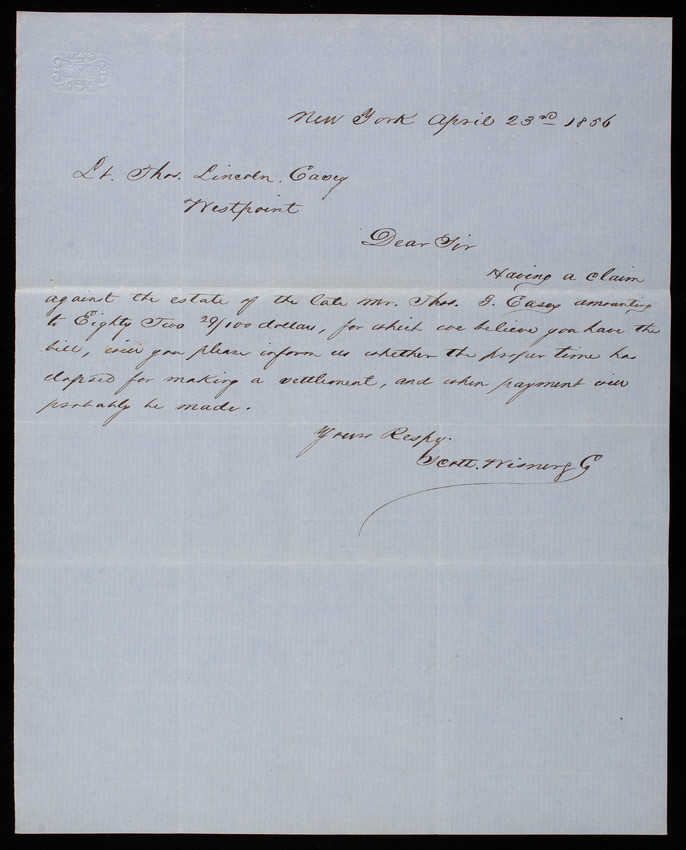 New York April 23rd 1856
Lt. Thos. Lincoln Casey
Westpoint
Dear Sir
Having a claim
against the estate of the late Mr. Thos. G. Casey amounting
to Eighty Two 29/100 dollars, for which we believe you have the
bill, will you please inform us whether the proper time has
elapsed for making a settlement, and when payment will
probably be made.
Yours Respy.
Scott,